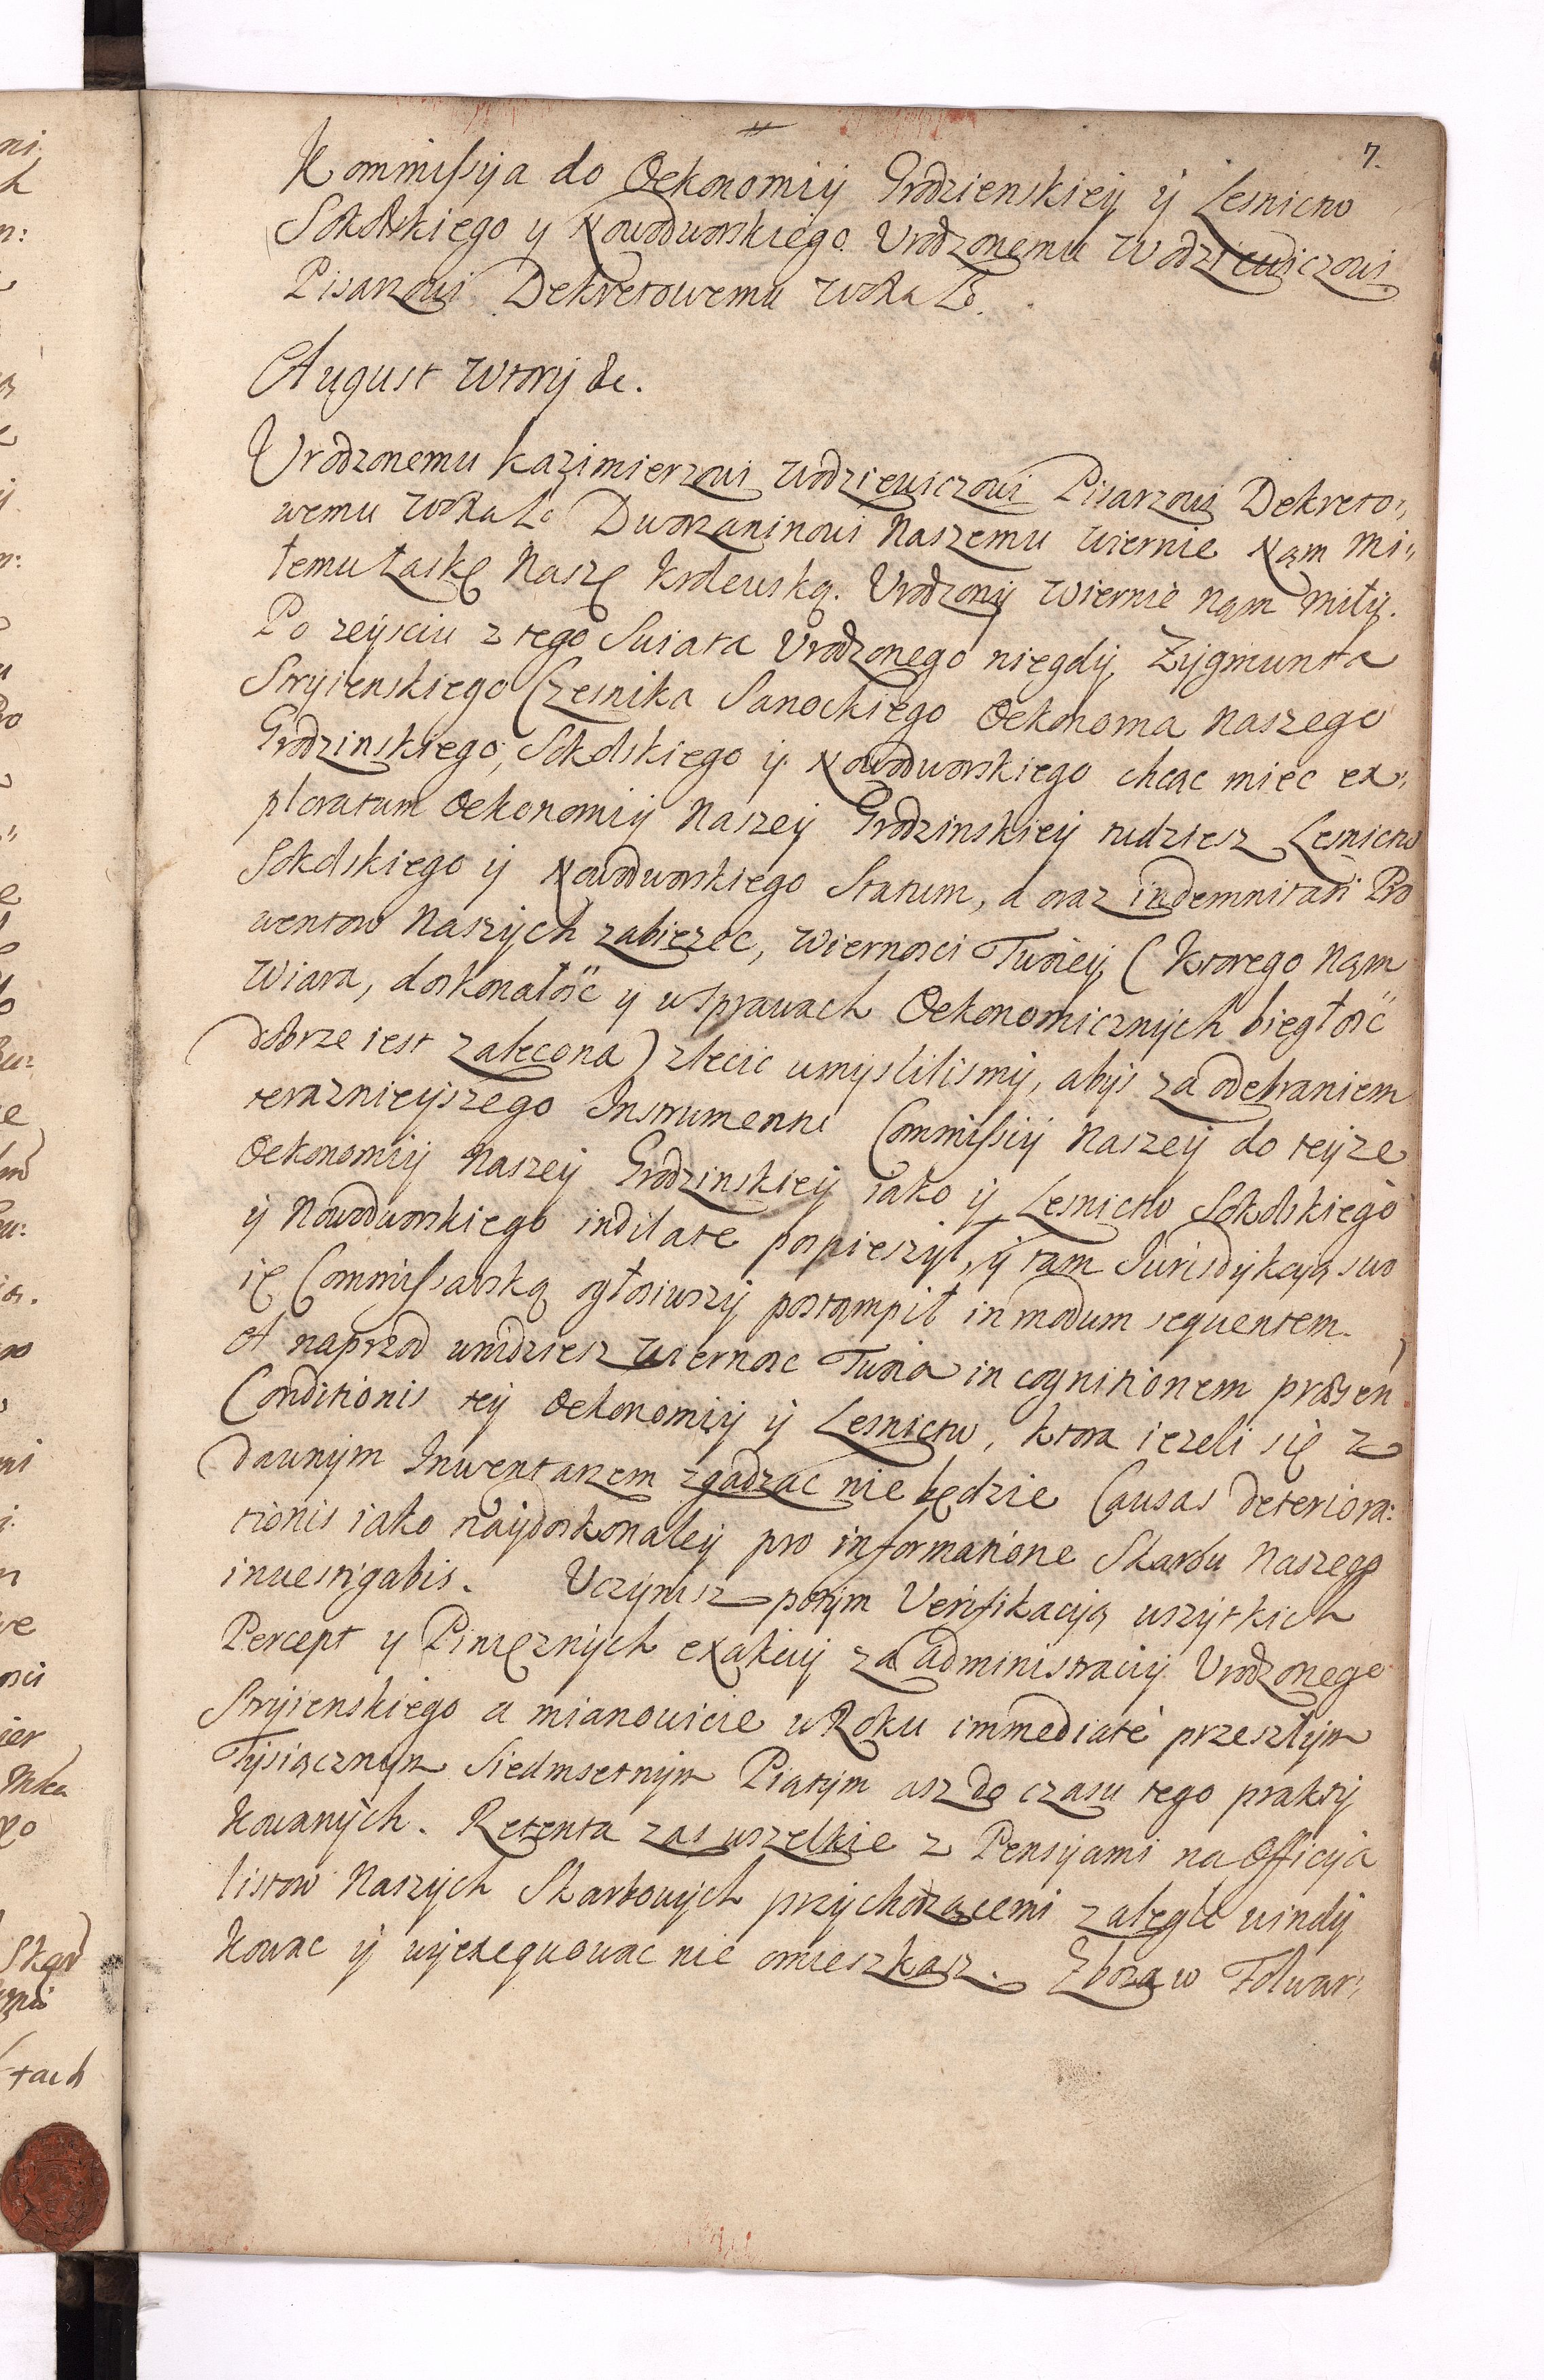 7.
Kommissyia do Oekonomiy Grodzienskiey y Lesnictw
Sokolskiego y Nowodworskiego Urodzonemu Wodziewiczowi
Pisarzowi Dekretowemu
August Wtory &c.
Urodzonemu Kazimierzowi Wodziewiczowi Pisarzowi Dekreto:,
wemu Dworzaninowi Naszemu Wiernie Nąm Mi„
temu Łaskę Naszę Krolewską. Urodzony Wiernie Nąm Miły.
Po zeysciu z tego Swiata Urodzonego niegdy Zygmunta
Stryienskiego Czesnika Sanockiego Oekonoma Naszego
Grodzinskiego, Sokolskiego y Nowodworskiego chcąc miec ex„
ploratum Oekonomiy Naszey Grodzinskiey tudziesz Lesnictw
Sokolskiego y Nowodworskiego Statum, a oraz indemnitati Pro
wentow Naszych zabiezec, Wiernosci Twoiey (Ktorego Nąm
Wiara, doskonałosc y w sprawach Oekonomicznych biegłosc
dobrze iest zalecona) zlecic umyslilismy, abys za odebraniem
terazniejszego Instrumentu Commissiy Naszey do teyze
Oekonomiy Naszey Grodzinskiey iako y Lesnictw Sokolskiego
y Nowodworskiego indilate pospieszył, y tam Jurisdykcyą swo
ię Commissarską ogłosiwszy postąmpił in modum sequentem.
A naprzod wnidziesz Wiernosc Twoia in cognitionem præsen
Conditionis tey Oekonomiy y Lesnictw, ktora iezeli się z
dawnym Inwentarzem zgadzac nie będzie Causas deteriora:
tionis iako naydoskonaley pro informatione Skarbu Naszego
investigabis. Uczynisz potym Verifikacyą wszytkich
Percept y Pinięznych exakcyi za administracyi Urodzonego
Stryienskiego a mianowicie w Roku immediate przeszłym
Tysiącznym Siedmsetnym Piątym asz do czasu tego prakty
kowanych. Retenta zas wszelkie z Pensyami na Officyia
listow Naszych Skarbowych przychodzącemi zaległe windy
kowac y wyexequowac nie omieszkasz. Zboza w Folwar„